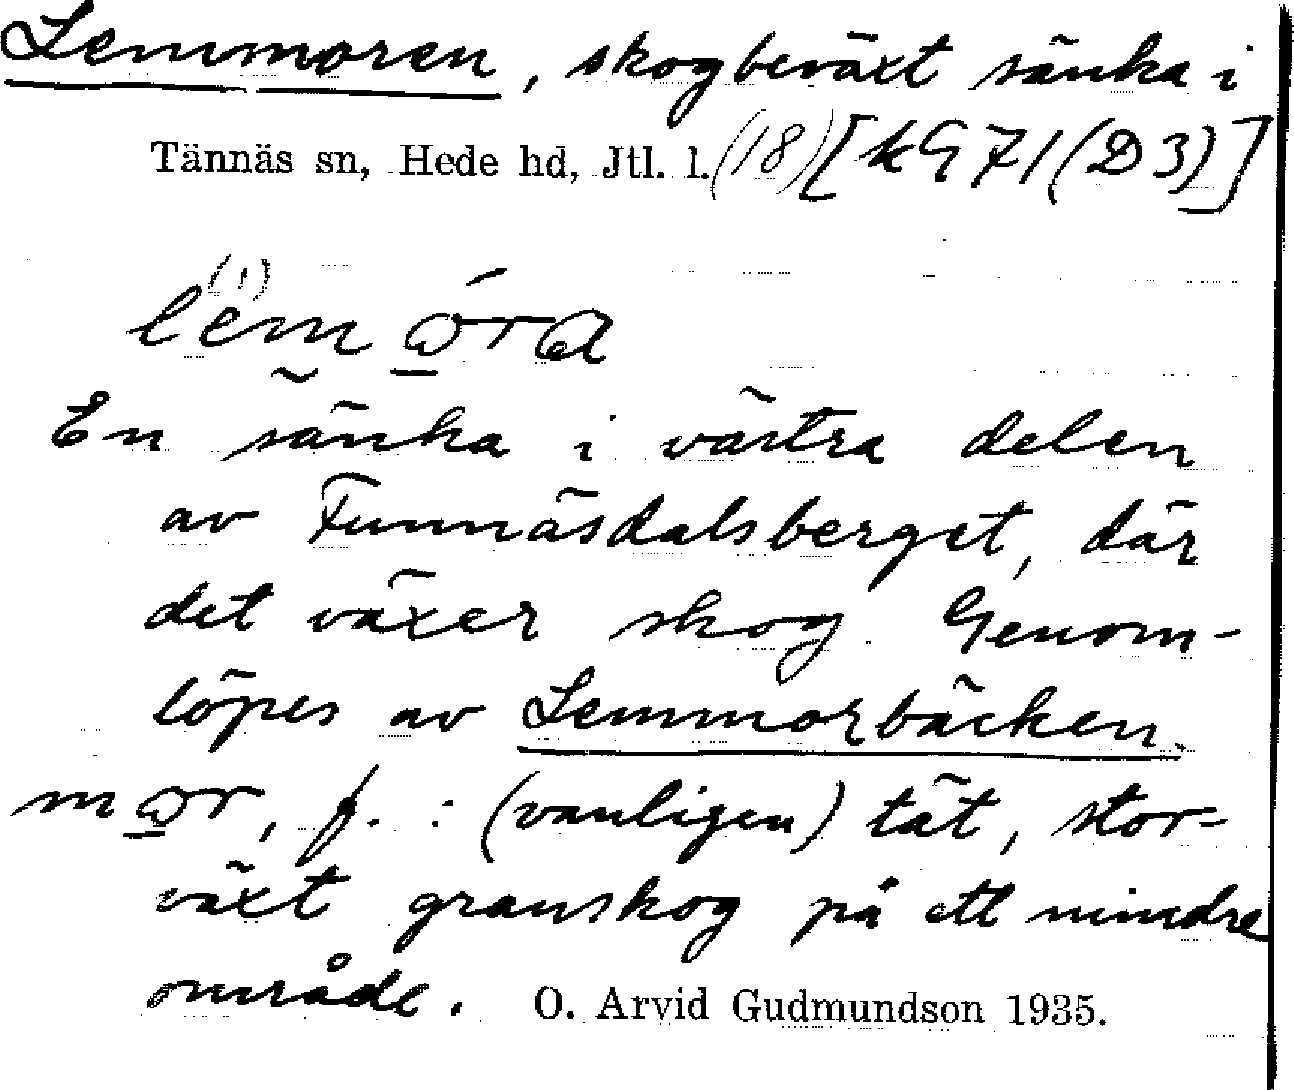 Lemmoren, skogbeväxt sänka i
Tännäs sn, Hede hd, Jtl. l. (18) [kG 71 (D3)]
En sänka i västra delen
av Funnäsdalsberget, där
det växer skog. Genom-
löpes av Lemmorbäcken.
mor, f. : (vanligen) tät, stor-
växt granskog på ett mindre
område. O. Arvid Gudmundson 1935.